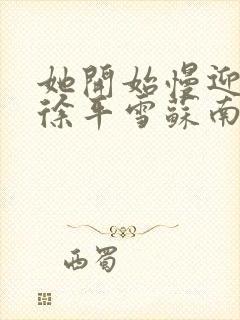 她開始慢迎
徐平雪蘇南
西蜀